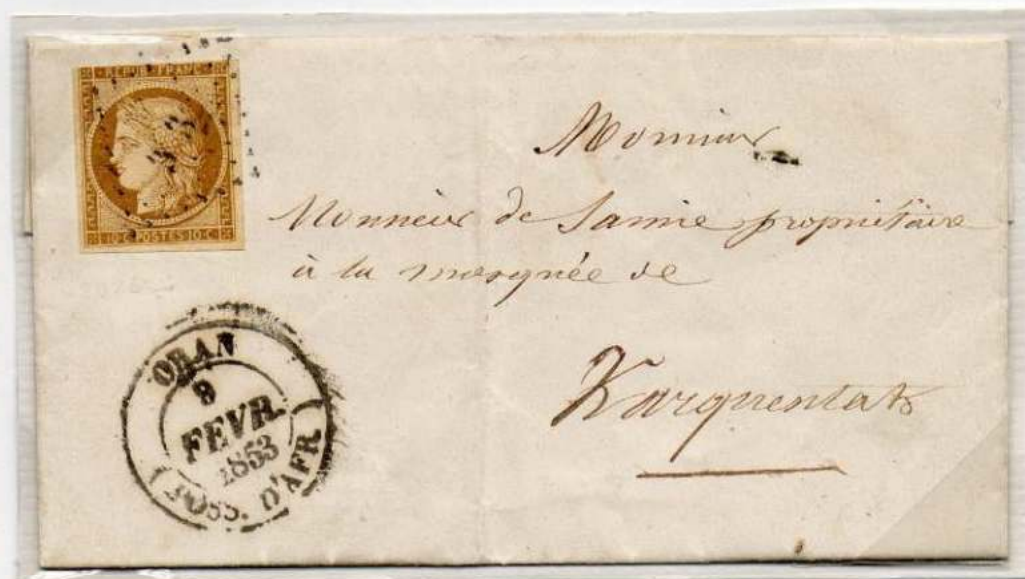 REPUB. FRANC.
10·C·POSTES·10·C
Monsieur
Monsieur de Samie propriétaire
à la mosquée de
Karguentah
ORAN
9
FEVR.
1853
(POSS. D'AFR.)